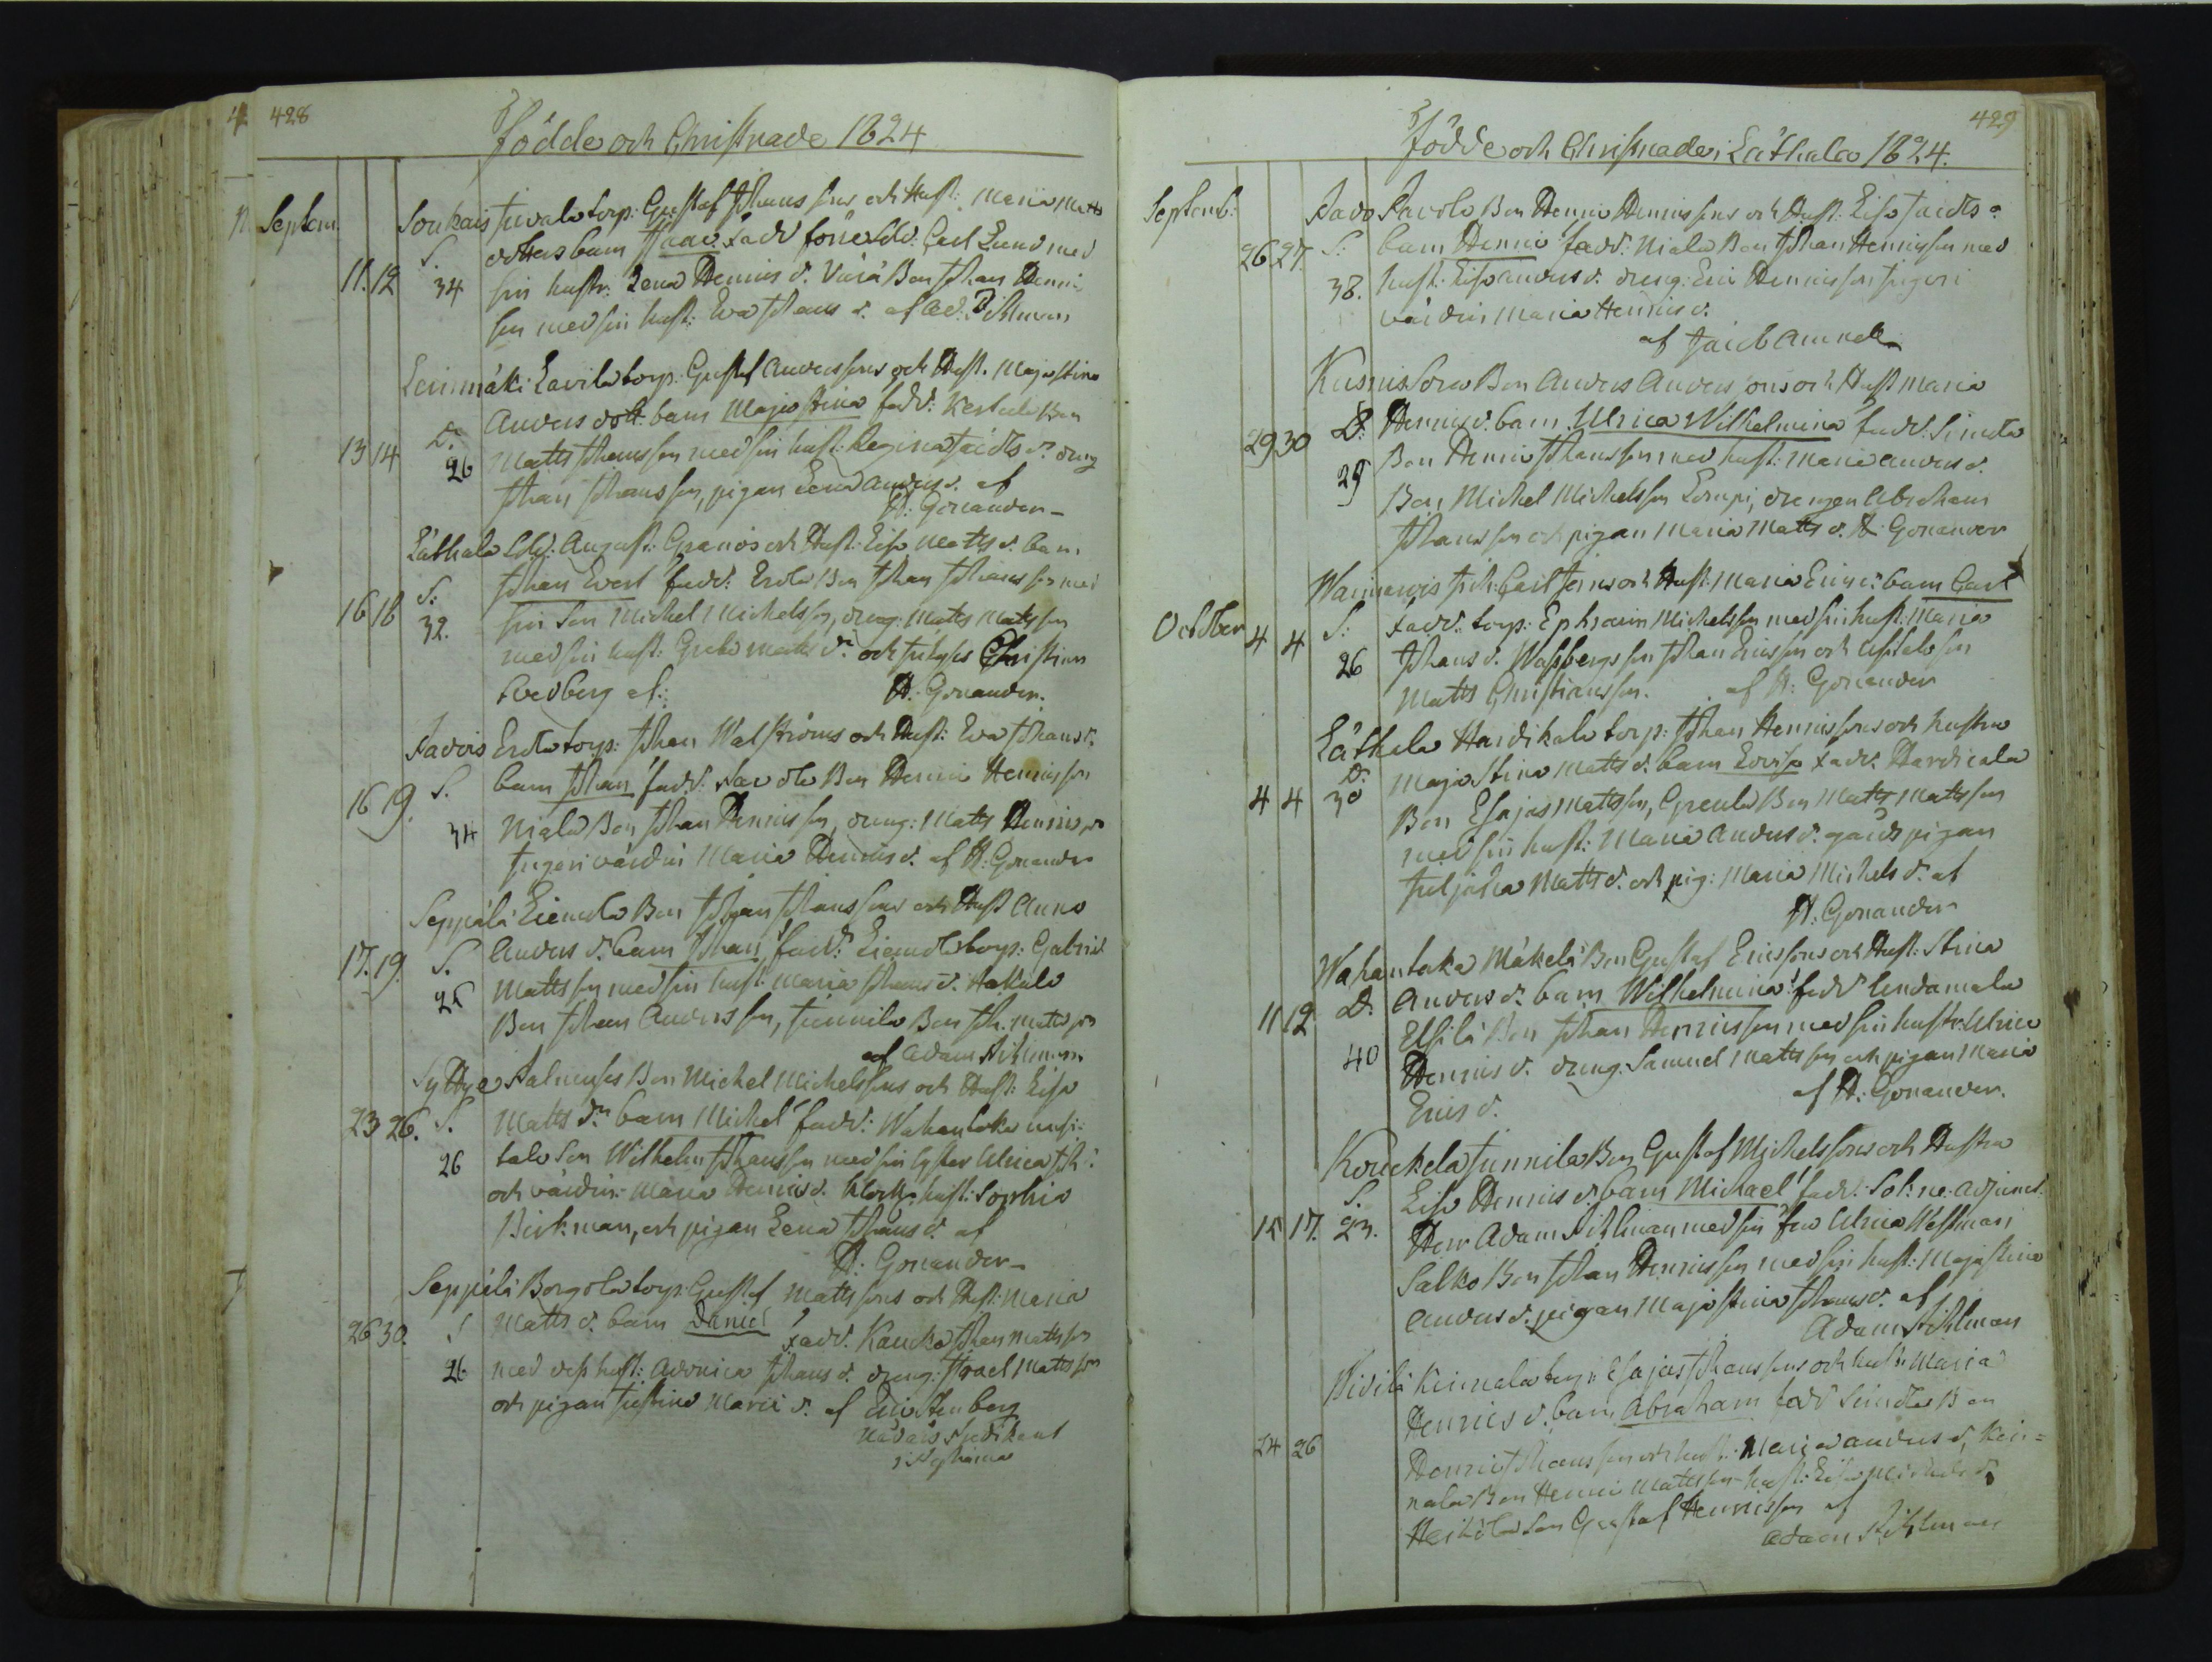 428
Födde och Christnade 1824
Septem.
Soukais Juvala torp: Gustaf Johans sons och Hust: Maria Matts
S. dotters barn Isaac fadd Carl Lund med
11. 12 34 sin hustr: Lena Henrics d. Bon Johan Henric
son med sin hust: Eva Johans d. af Ad:
Leinmäki Lavila torp: Gustaf Anderssons och Hust. Maja Stina
D. Anders dott. barn Maja Stina fadd: Bon
13 14 26 Matts Johansson med sin hust: Regina Jacobs dr dreng
Johan Johansson, pigan Lena Anders d. af
H: Gonander
Läthala Sold: August: Granös och Hust: Lisa Matts d. barn
S: Johan Evert fadd: Erola Bon Johan Johansson med
16 18 32. sin Son Michel Michelsson, dreng: Matts Mattsson
med sin hust: Greta Matts dr och Christina
Svedberg af: H: Gonander.
Savois Erola torp: Johan Walströms och Hust: Eva Johans d.
16 19. S. barn Johan fadd: Savola Bon Henric Henricsson
34 Niala Bon Johan Henricsson, dreng: Matts Henricson
Jngeri värdin Maria Henrics d. af H: Gonander
Seppälä Liemola Bon Johan Johanssons och Hust Anna
17. 19. S. Anders d. barn Johan fadd: Liemola torp: Gabriel
25 Mattsson med sin hust: Maria Johans d. Hakala
Bon Johan Andersson, Junnila Bon Joh. Mattsson
af Adam Sihlman
Syttye Salmuses Bon Michel Michelssons och Hust: Lisa
23 26. S. Matts dr barn Michel fadd: Wahantaka uusi=
26 talo Son Wilhelm Johansson med sin Syster Ulrica Joh:
och värdin: Maria Henrics d. Klock: hust: Sophia
Birkman, och pigan Lena Johans d. af
H: Gonander
Seppälä Borgola torp: Gustaf Mattssons och Hust: Maria
26 30. S Matts d. barn Daniel fadd. Kaucka Johan Mattsson
26 med dess hust: Advnica Johans d. dreng: Israel Mattsson
och pigan Justina Marci d. af Eric Stenberg
Nådårs Predikant
429
Födde och Christnade i Läthala 1824.
Septemb:
Savo Savola Bon Henric Henricssons och Hust: Lisa Jacobs d
26 27. S: barn Henric fadd: Niala Bon Johan Henricsson med
38. hust: Lisa Anders d. dreng: Eric Henricsson Jngeri
värdin Maria Henrics d.
af Jacob Amnell
Kusnis Sora Bon Anders Anderssons och Hust Maria
29 30 D: Henrics d. barn Ulrica Wilhelmina fadd: Simola
29 Bon Henric Johansson med hust: Maria Anders d.
Bon Michel Michelsson Lempi, drengen Abraham
Johansson och pigan Maria Matts d. H: Gonander
Wainanois Joh: Carl Jerns och Hust: Maria Erics d. barn Carl
October 4 4 S: fadd: torp: Ephraim Michelsson med sin hust: Maria
26 Johans d. Wassbergs son Johan Ericsson och son
Matts Christiansson. af H: Gonander
Läthala Hardikala torp: Johan Henricssons och hustru
4 4 D: 30 Maja Stina Matts d. barn Lovisa fadd. Hardicala
Bon Esajas Mattsson, Greula Bon Matts Mattsson
med sin hust: Maria Anders d. gårds pigan
Juljana Matts d. och pig: Maria Michels d. af
H: Gonander
Wahantaka Mäkelä Bon Gustaf Ericssons och Hust: Stina
11 12 D: Anders d. barn Wilhelmina fadd Undamala
40 Elsilä Bon Johan Henricsson med sin hustr: Ulrica
Henrics d. dreng: Samuel Mattsson och pigan Maria
Erics d. af H: Gonander.
Kouckela Junnila Bon Gustaf Michelssons och Hustru
S. Lisa Henrics d. barn Michael fadd: Sol: ne. adjunct:
15 17. 27. Herr Adam Sihlman med sin fru Ulrica Westman
Salko Bon Johan Henricsson med sin hust: Maja Stina
Anders d. pigan Maja Stina Johans d. af
Adam Sihlman
Widilä Keinala torp: Esajas Johanssons och hustr: Maria
Henrics d. barn Abraham fadd Simola Bon
24 26 Henric Johansson och hust: Maria Anders d, Kei=
nala Bon Henric Mattsson hust: Lisa Michels d.
Heikola Son Gustaf Henricsson af
Adam Sihlman